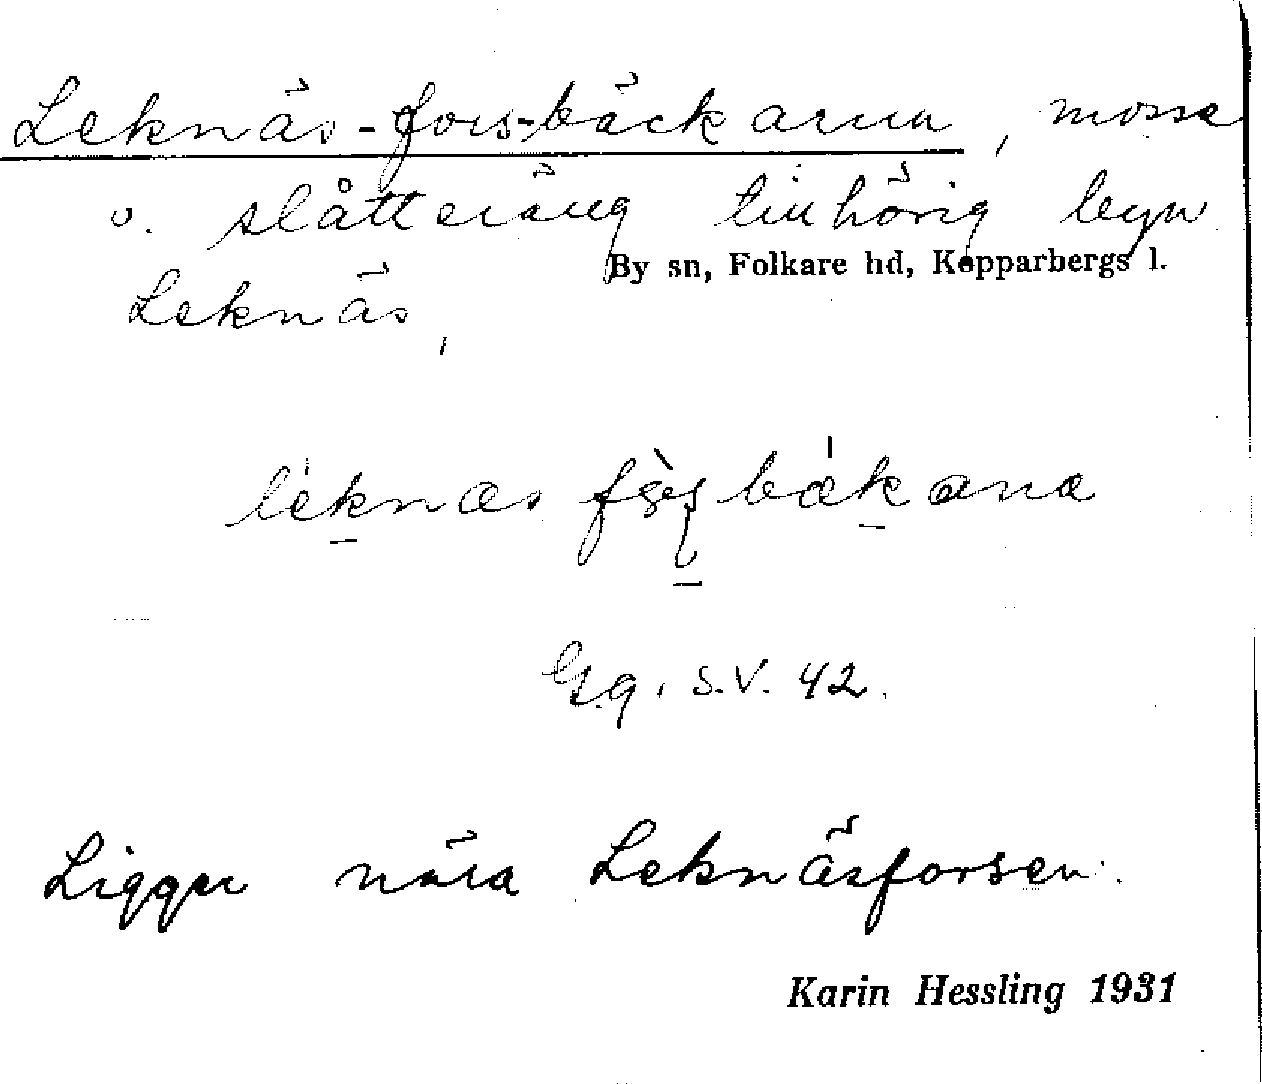 Leknäs-fors-bäckarna, mosse
o. slåtteräng tillhörig byn
By sn, Folkare hd, Kopparbergs l.
Leknäs,
G.g. S.V. 42.
Ligger nära Leknäsforsen.
Karin Hessling 1931